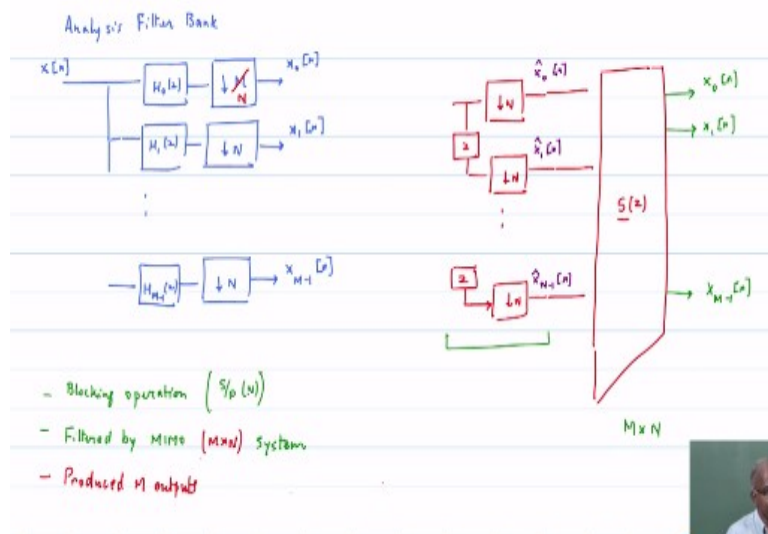 Analysis Filter Bank
x[n]
H₀(z) ↓M N x₀[n]
H₁(z) ↓N x₁[n]
H_{M-1}(z) ↓N x_{M-1}[n]
↓N x̂₀[n] x₀[n]
z ↓N x̂₁[n] x₁[n]
S(z)
z ↓N x̂_{N-1}[n] x_{M-1}[n]
M×N
- Blocking operation (S/P (N))
- Filtered by MIMO (M×N) system
- Produced M outputs